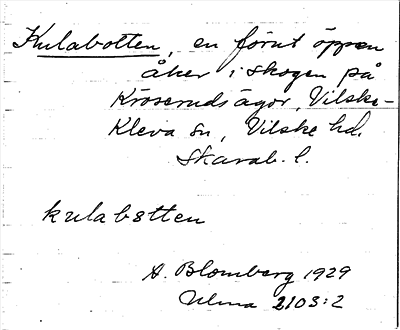 Kulabotten, en förut öppen
åker i skogen på
Kröseruds ägor, Vilske-
Kleva sn, Vilske hd.
Skarab. l.
kulabotten
A. Blomberg 1929
Ulma 2103:2